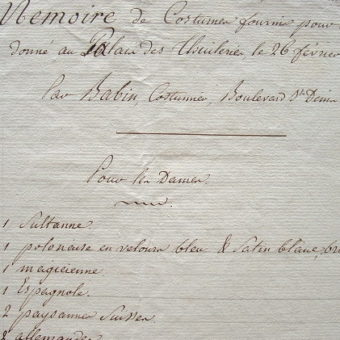 Mémoire de Costumes fournis pour
donné au Palais des Thuileries le 26 février
Par Babin, Costumier, Boulevard St Denis
Pour les Dames.
1 Sultanne.
1 polonaise en velours bleu & Satin blanc, bro
1 magicienne.
1 Espagnole.
2 paysannes Suisses.
2 allemandes